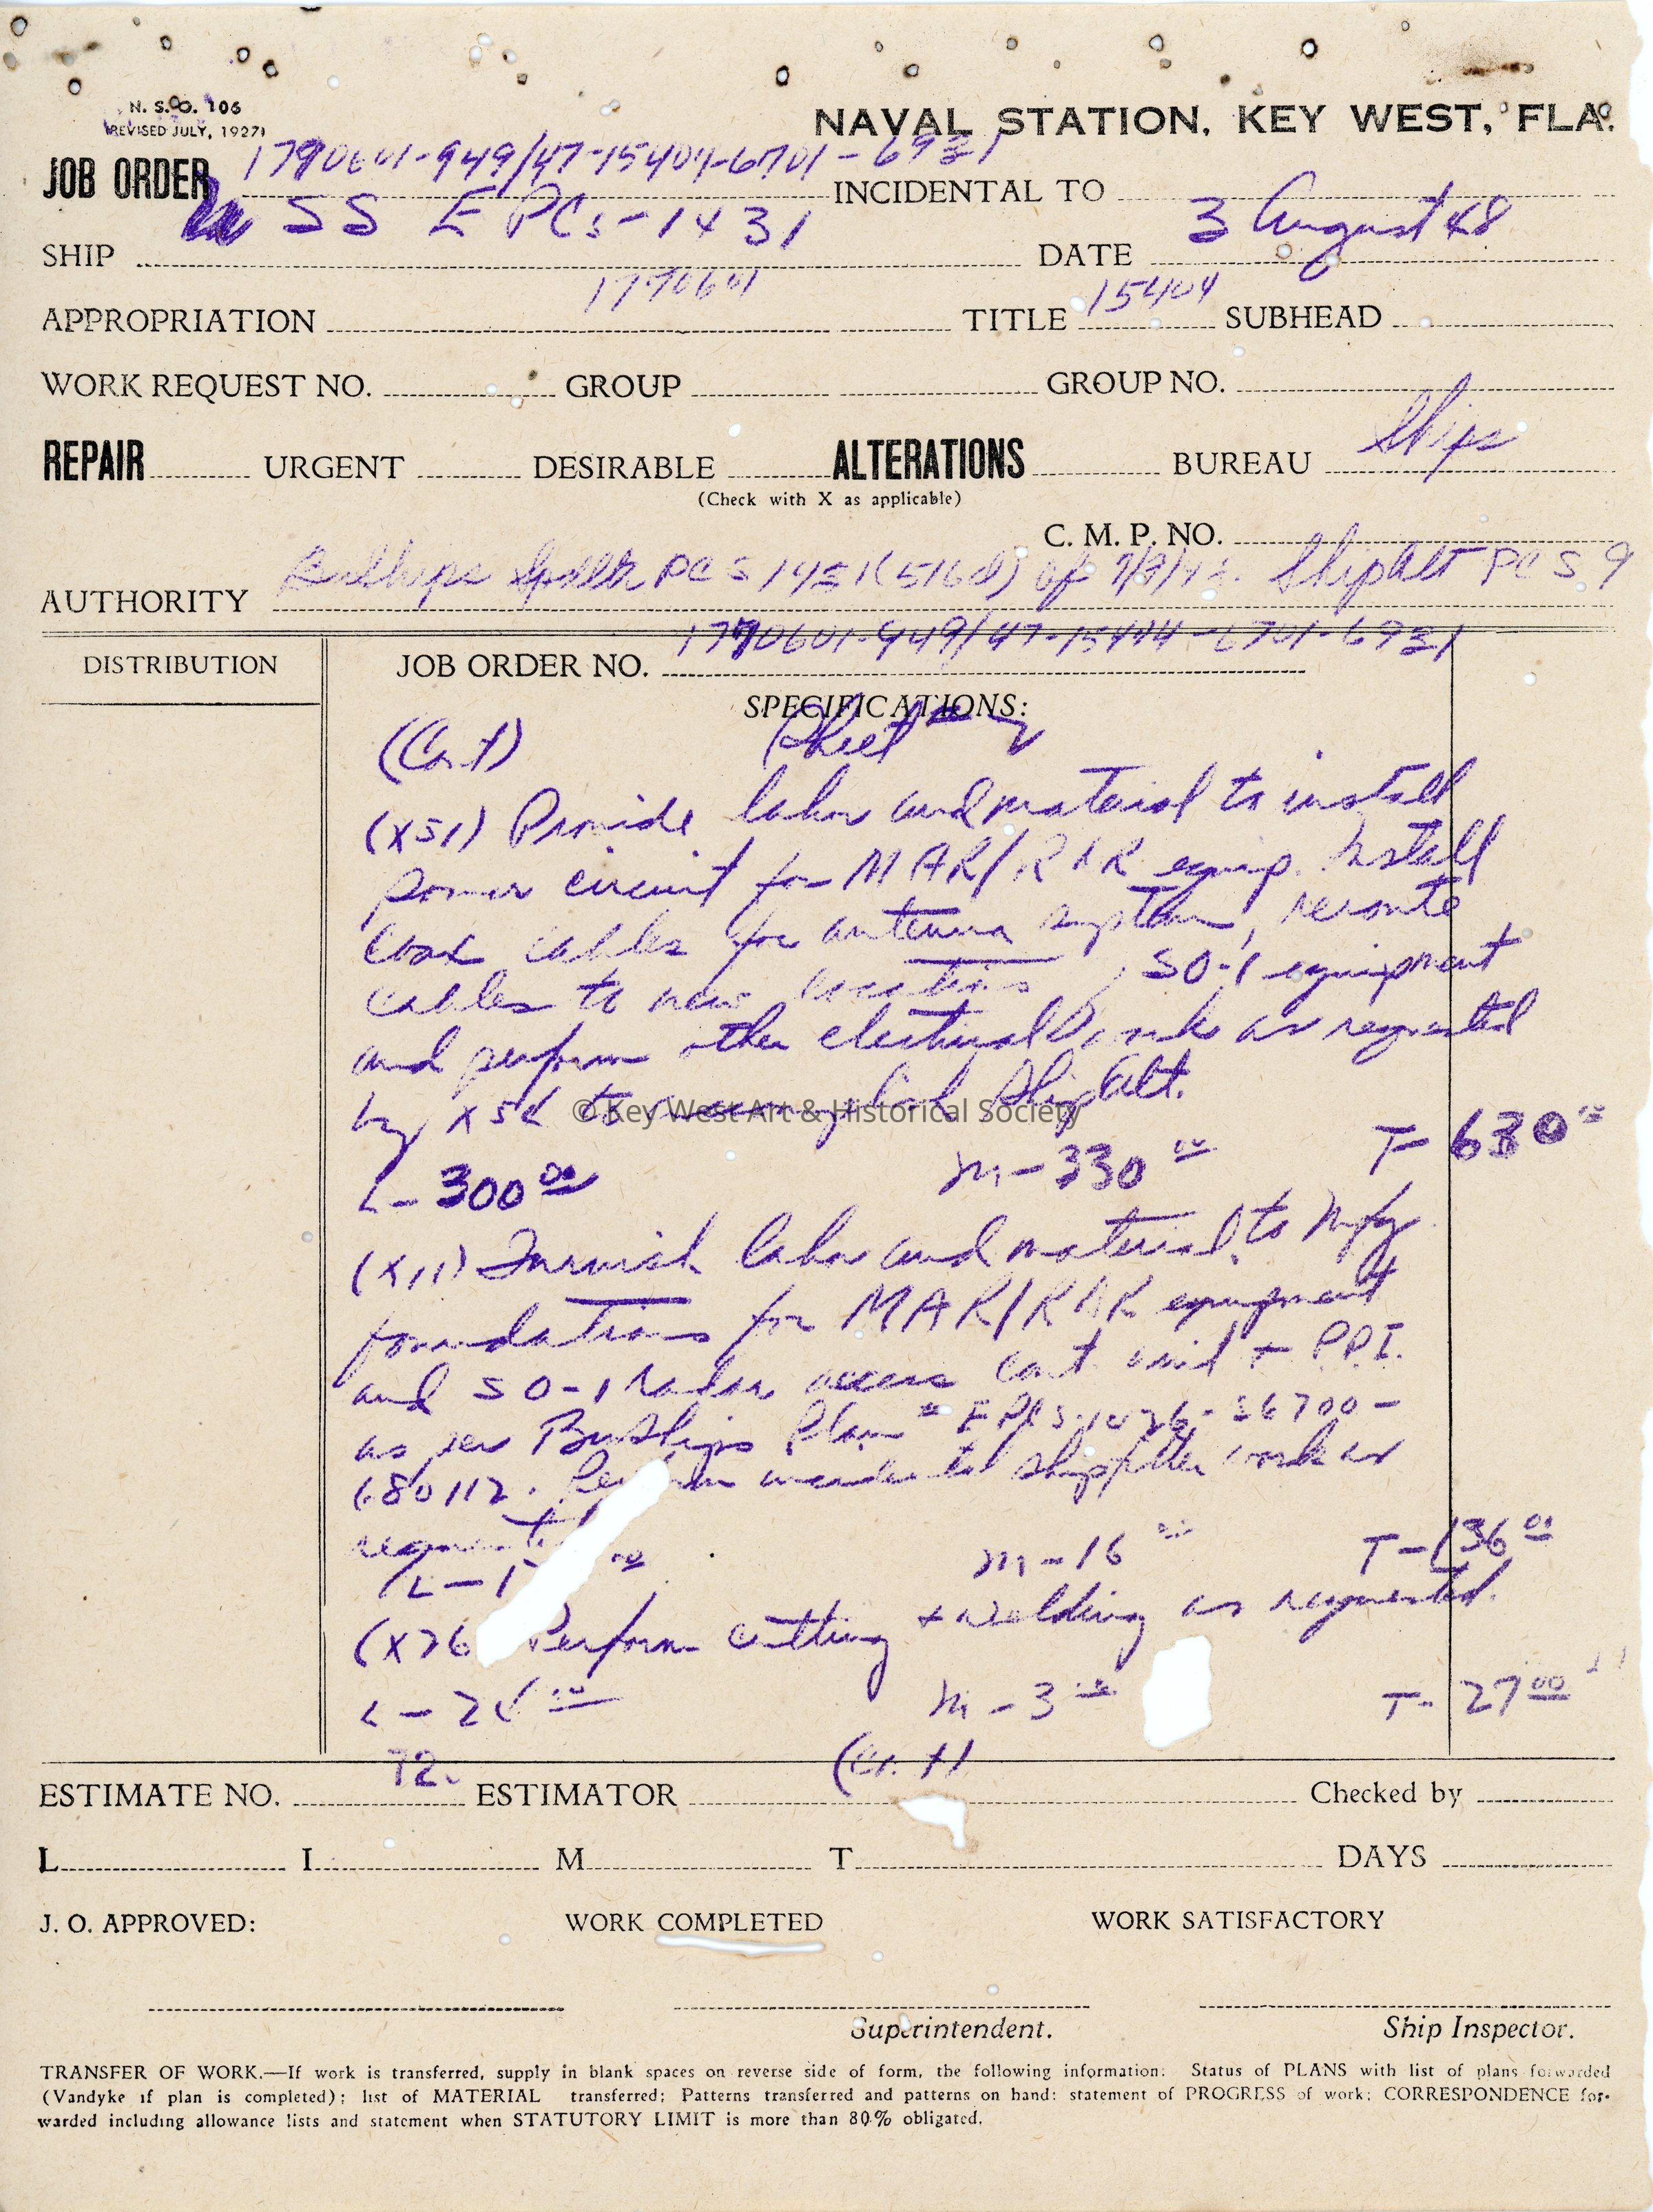 N. S. O. 106
(REVISED JULY, 1927)
NAVAL STATION, KEY WEST, FLA.
JOB ORDER 1790601-949/47-15404-6701-6931 INCIDENTAL TO
SHIP USS EPCS-1431 DATE 3 August 48
APPROPRIATION 1790601 TITLE 15404 SUBHEAD
WORK REQUEST NO. GROUP GROUP NO.
REPAIR URGENT DESIRABLE ALTERATIONS BUREAU Ships
(Check with X as applicable)
C. M. P. NO.
AUTHORITY BuShips PCS 1431 (516d) of ShipAlt PCS 9
DISTRIBUTION
JOB ORDER NO. 1790601-949/47-15404-6701-6931
SPECIFICATIONS:
(Con't) Sheet # 2
(X51) Provide labor and material to install
power circuit for MAR/RAR equip. Install
coax cables for antenna system, reroute
cables to new locations, SO-1 equipment
and perform other electrical work as requested
by X52 to accomplish ShipAlt.
© Key West Art & Historical Society
L-300 00 M-330 00 T-630 00
(X11) Furnish labor and material to Mfg
foundations for MAR/RAR equipment
and SO-1 radar access cont. unit + P.P.I.
as per BuShips Plan # EPCS-1426-S6700-
680112. Perform incidental shipfitter work as
requested
L-1 00 M-16 00 T-136 00
(X26 Perform cutting + welding as requested.
L-24 00 M-3 00 T-27 00
(Con't)
ESTIMATE NO. 72. ESTIMATOR Checked by
L I M T DAYS
J. O. APPROVED: WORK COMPLETED WORK SATISFACTORY
Superintendent. Ship Inspector.
TRANSFER OF WORK.—If work is transferred, supply in blank spaces on reverse side of form, the following information: Status of PLANS with list of plans forwarded
(Vandyke if plan is completed); list of MATERIAL transferred; Patterns transferred and patterns on hand: statement of PROGRESS of work; CORRESPONDENCE for-
warded including allowance lists and statement when STATUTORY LIMIT is more than 80% obligated.